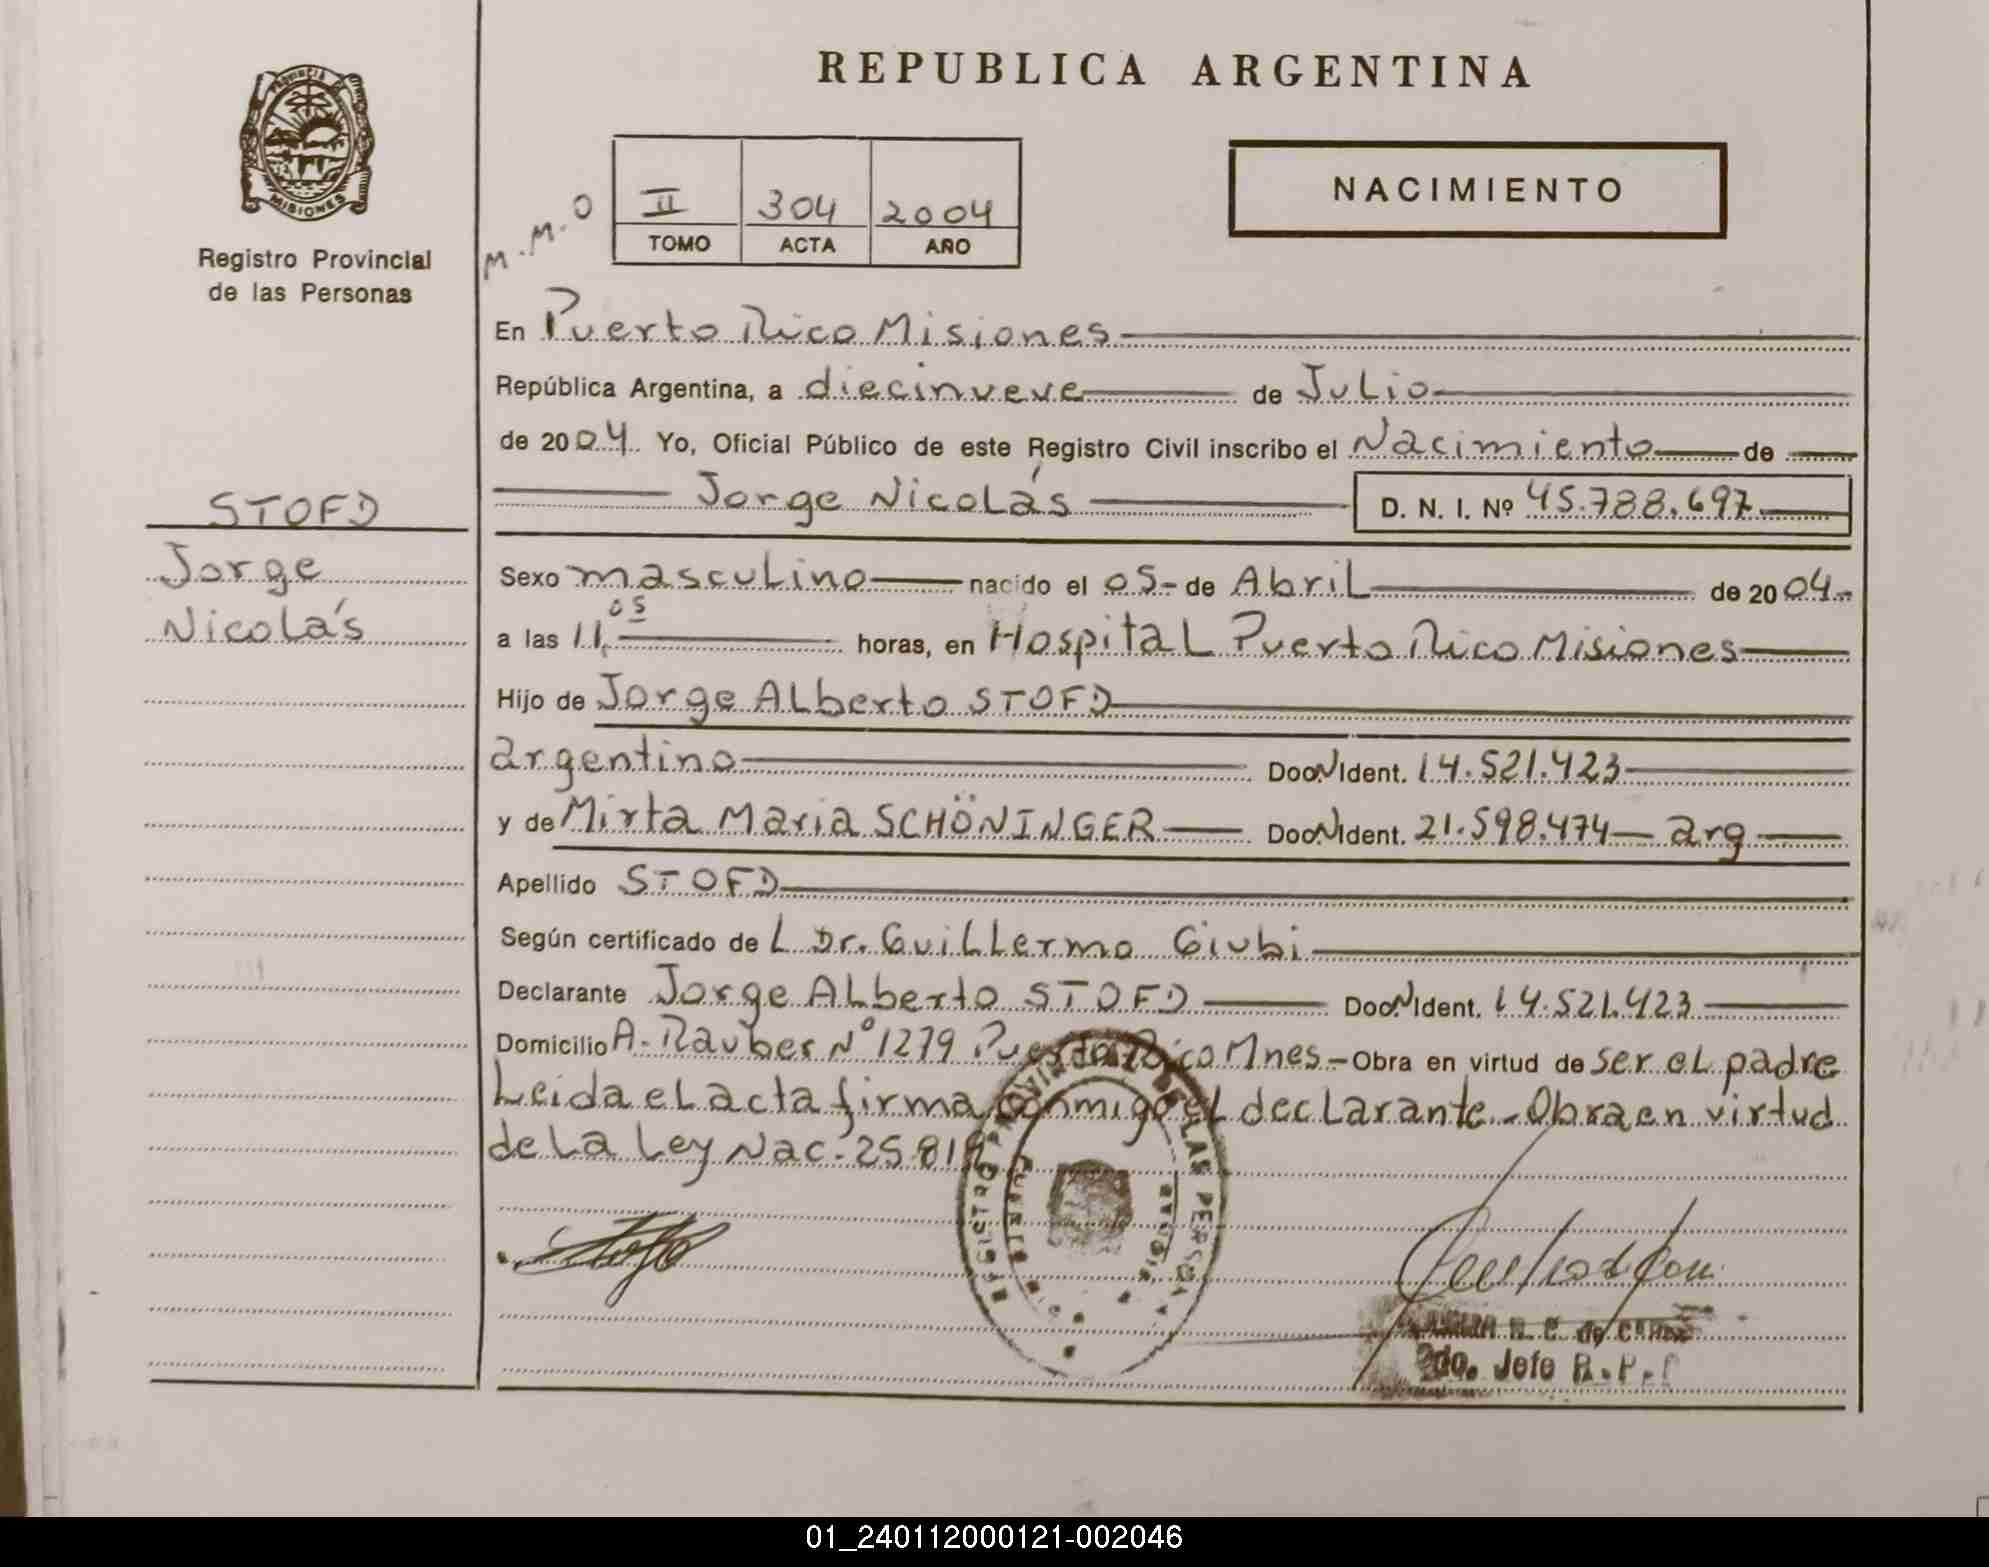 REPUBLICA ARGENTINA
PROVINCIA DE MISIONES
Registro Provincial
de las Personas
NACIMIENTO
M.M.O
II 304 2004
TOMO ACTA AÑO
En Puerto Rico Misiones
República Argentina, a diecinueve de Julio
de 2004 Yo, Oficial Público de este Registro Civil inscribo el Nacimiento de
Jorge Nicolás D. N. I. Nº 45.788.697
STOFD
Jorge
Nicolás
Sexo masculino nacido el 05 - de Abril de 2004.-
a las 11,05 horas, en Hospital Puerto Rico Misiones
Hijo de Jorge Alberto STOFD
argentino Doc. N Ident. 14.521.423
y de Mirta Maria SCHÖNINGER Doc. N Ident. 21.598.474 - arg
Apellido STOFD
Según certificado de L Dr. Guillermo Giubi
Declarante Jorge Alberto STOFD Doc. N Ident. 14.521.423
Domicilio A. Rauber Nº 1279 Puerto Rico Mnes.- Obra en virtud de ser el padre
Leida el acta firma conmigo el declarante.- Obra en virtud
de la Ley Nac. 25.819
REGISTRO PROVINCIAL DE LAS PERSONAS
PUERTO
MISIONES
R. C. de
2do. Jefe R.P.
01_240112000121-002046